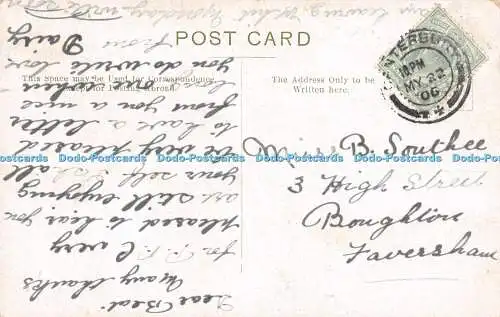 POST CARD
This space may be Used for Correspondence
Except for Posting Abroad.
The Address Only to be
Written here.
CANTERBURY
MY 22
06
Miss B. Southee
3 High Street
Boughton
Faversham
Dear Beat
Many thanks
for P.P.C very
pleased to hear you
are still enjoying
your self
be very pleased
to have a letter
from you
you do write love
from
Daisy
Dodo-Postcards Dodo-Postcards Dodo-Postcards Dodo-Postcards Dodo-Postcards Dodo-Postcards Dodo-Postcards